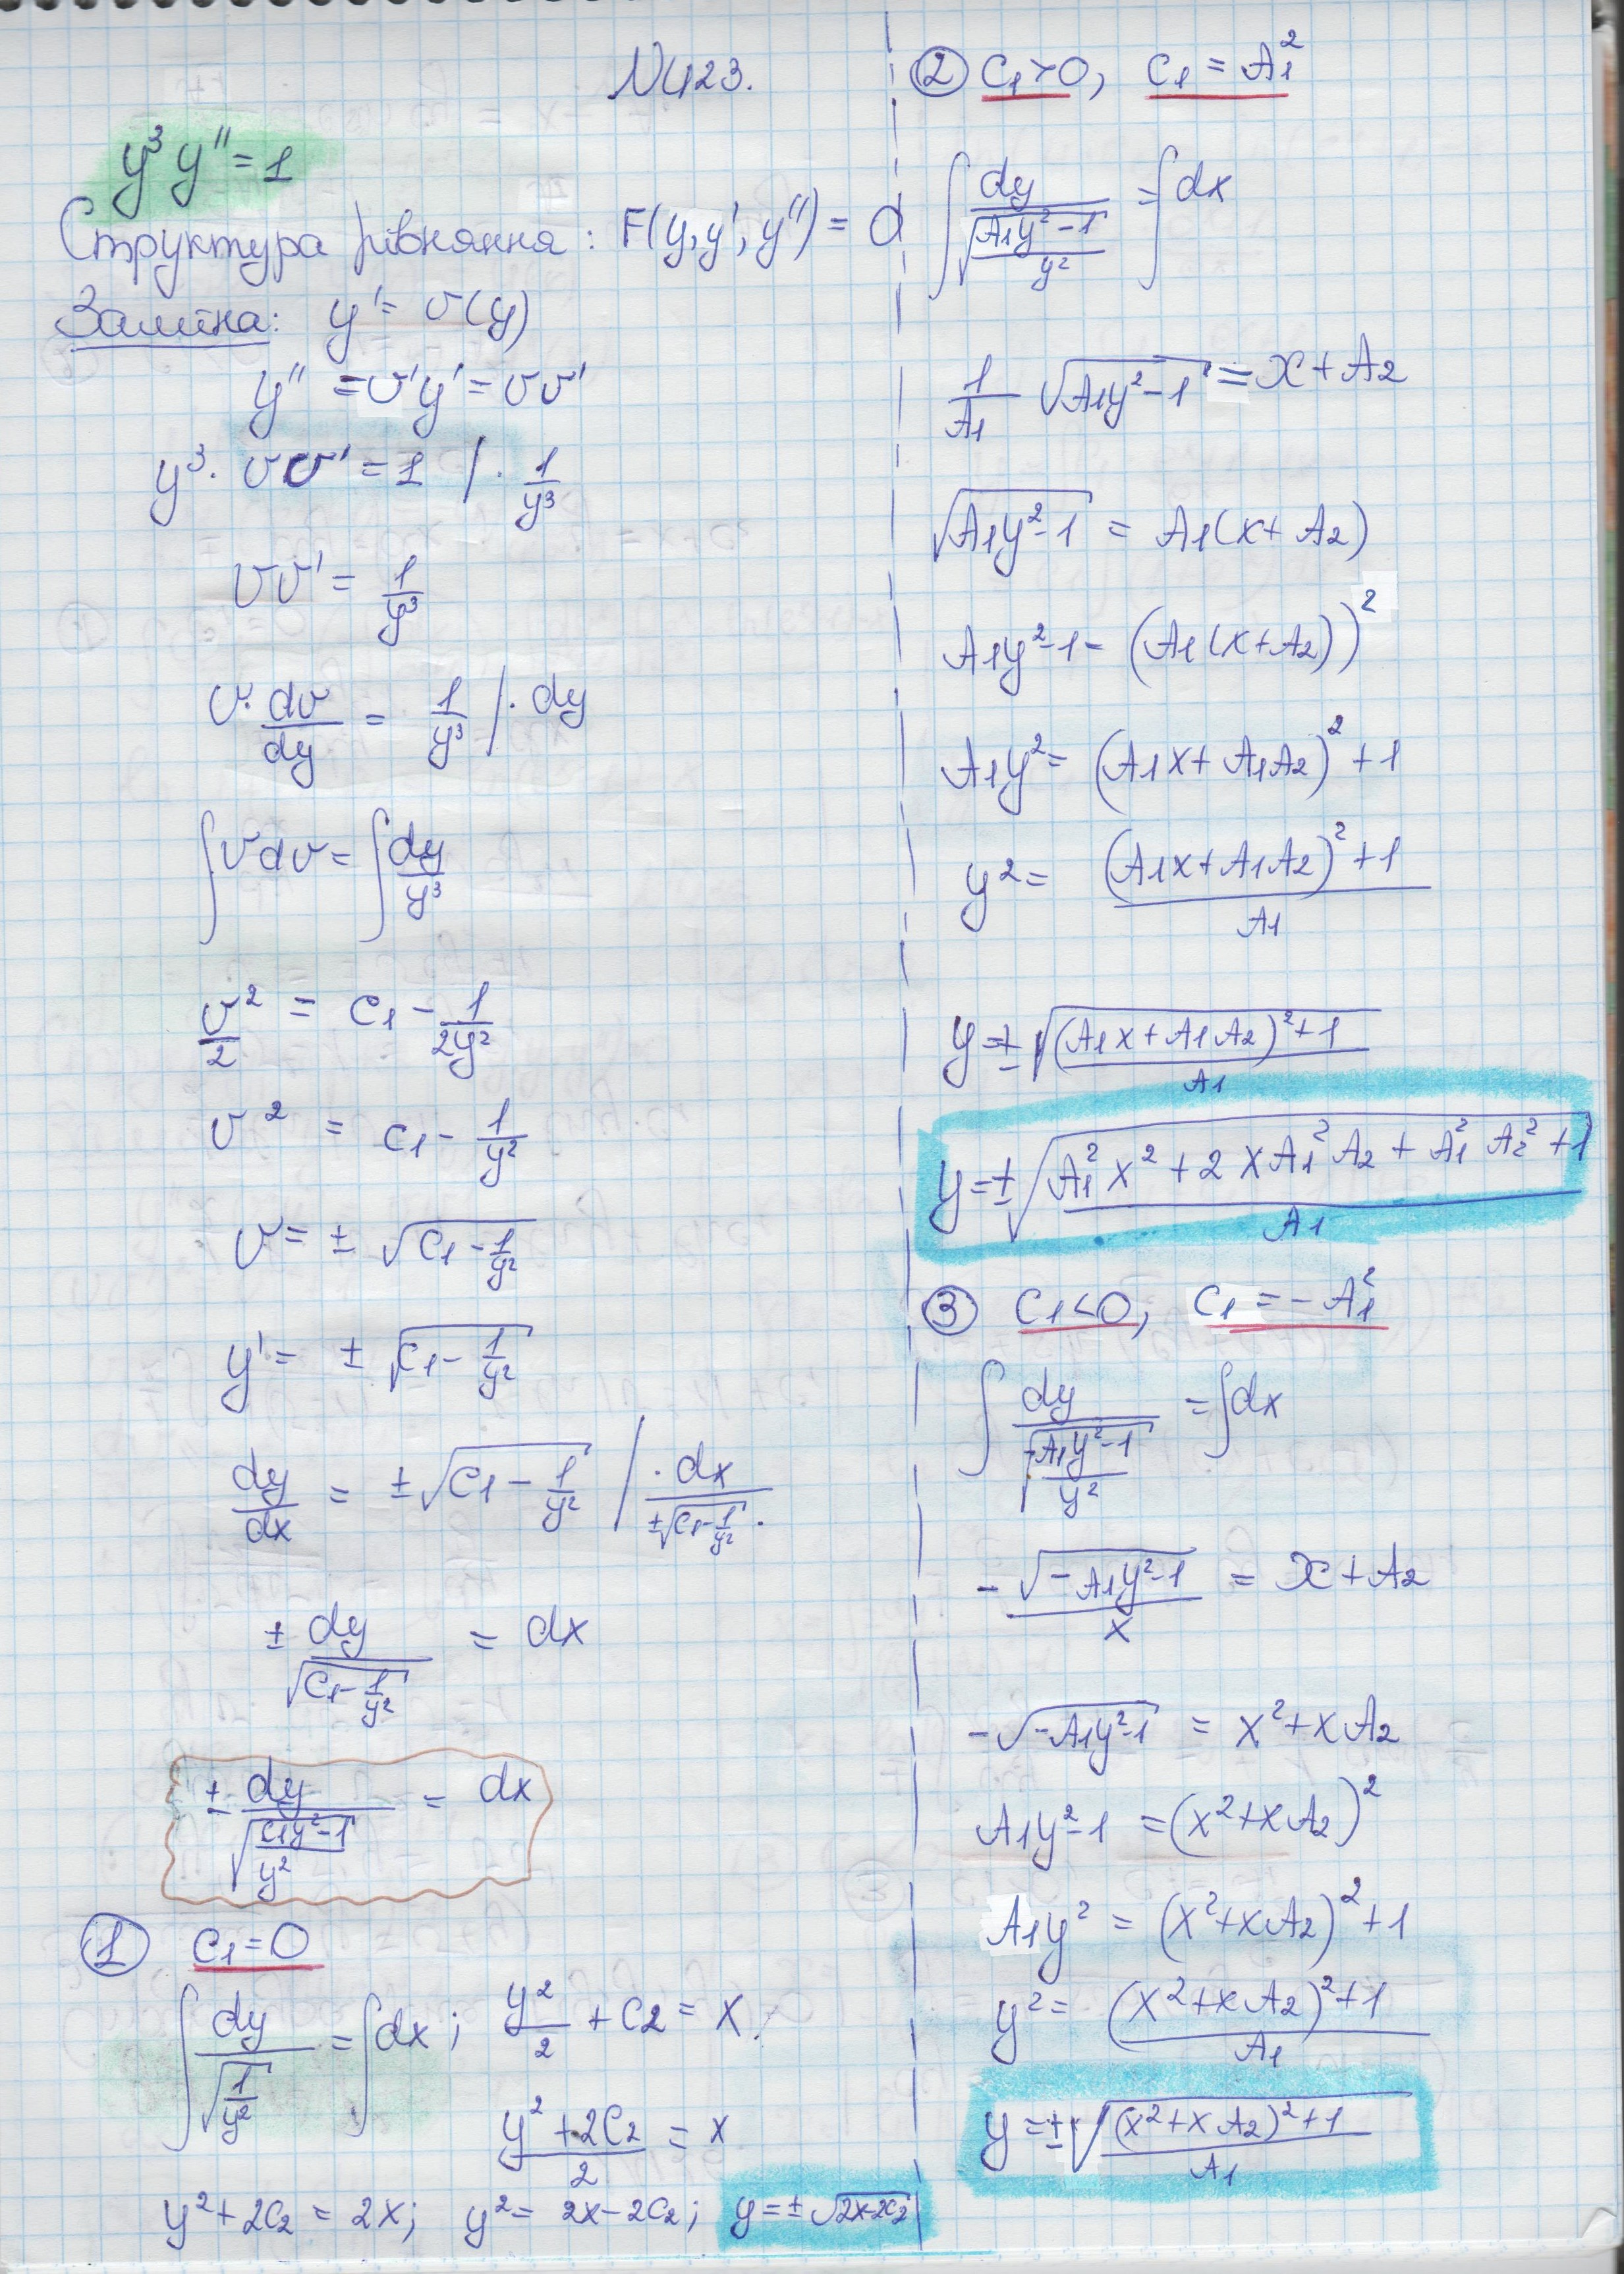 N423.
y³y'' = 1
Структура рівняння: F(y, y', y'') = 0
Заміна: y' = v(y)
y'' = v'y' = vv'
y³· vv' = 1 /· 1/y³
vv' = 1/y³
v· dv/dy = 1/y³ /· dy
∫vdv = ∫dy/y³
v²/2 = C1 - 1/2y²
v² = C1 - 1/y²
v = ± √(C1 - 1/y²)
y' = ± √(C1 - 1/y²)
dy/dx = ±√(C1 - 1/y²) /· dx/±√(C1 - 1/y²).
± dy/√(C1 - 1/y²) = dx
± dy/√((C1y² - 1)/y²) = dx
① C1 = 0
∫dy/√(1/y²) = ∫dx; y²/2 + C2 = x.
(y² + 2C2)/2 = x
y² + 2C2 = 2x; y² = 2x - 2C2; y = ± √(2x-2C2)
② C1 > 0, C1 = A1²
∫dy/√((A1y² - 1)/y²) = ∫dx
1/A1 √(A1y² - 1) = x + A2
√(A1y² - 1) = A1(x + A2)
A1y² - 1 - (A1(x + A2))²
A1y² = (A1x + A1A2)² + 1
y² = ((A1x + A1A2)² + 1)/A1
y = ± √(((A1x + A1A2)² + 1)/A1)
y = ± √((A1²x² + 2xA1²A2 + A1²A2² + 1)/A1)
③ C1 < 0, C1 = - A1²
∫dy/√((-A1y² - 1)/y²) = ∫dx
- √(-A1y² - 1)/x = x + A2
- √(-A1y² - 1) = x² + xA2
A1y² - 1 = (x² + xA2)²
A1y² = (x² + xA2)² + 1
y² = ((x² + xA2)² + 1)/A1
y = ± √(((x² + xA2)² + 1)/A1)